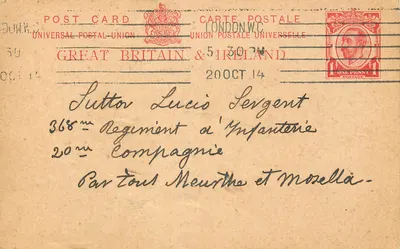 POST CARD
CARTE POSTALE
UNIVERSAL POSTAL UNION
UNION POSTALE UNIVERSELLE
GREAT BRITAIN & IRELAND
LONDON.W.C.
5 30 PM
20 OCT 14
30
OCT 14
ONE PENNY
Suttor Lucio Sergent
368me Regiment d'Infanterie
20me Compagnie
Par Toul Meurthe et Mosella